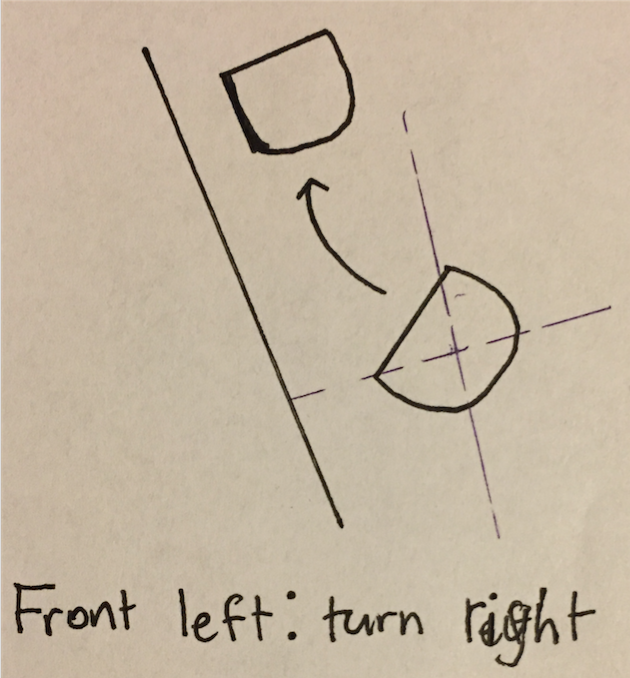 Front left: turn right